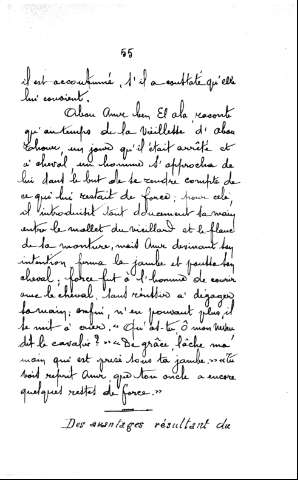 55
il est accoutumé, s'il a constaté qu'elle
lui convient.
Abou Amr ben El ala raconte
qu'au temps de la vieillesse d'Abou
un jour qu'il était arrêté et
à cheval un homme s'approcha de
lui dans le but de se rendre compte de
ce qui lui restait de force; pour cela,
il introduisit tout doucement sa main
entre le mollet du vieillard et le flanc
de sa monture, mais Amr devinant son
intention ferma la jambe et poussa son
cheval; force fut à l'homme de courir
avec le cheval, sans réussir à dégager
sa main; enfin, n'en pouvant plus, il
se mit à crier. "Qu'as-tu, ô mon neveu
dit le cavalier?" "De grâce, lâche ma
main qui est prise sous ta jambe." "Tu
vois reprit Amr, que ton oncle a encore
quelques restes de force."
Des avantages résultant du